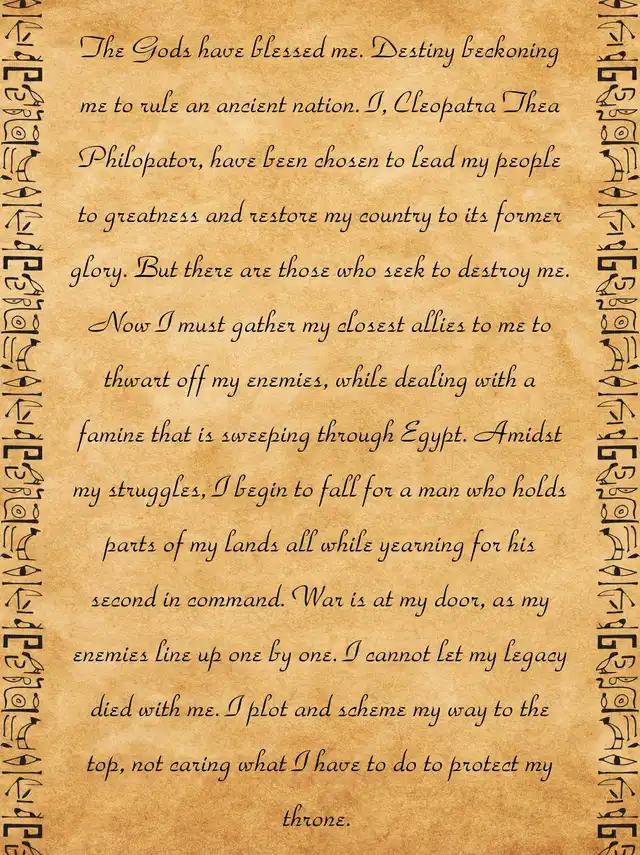 The Gods have blessed me. Destiny beckoning
me to rule an ancient nation. I, Cleopatra Thea
Philopator, have been chosen to lead my people
to greatness and restore my country to its former
glory. But there are those who seek to destroy me.
Now I must gather my closest allies to me to
thwart off my enemies, while dealing with a
famine that is sweeping through Egypt. Amidst
my struggles, I begin to fall for a man who holds
parts of my lands all while yearning for his
second in command. War is at my door, as my
enemies line up one by one. I cannot let my legacy
died with me. I plot and scheme my way to the
top, not caring what I have to do to protect my
throne.